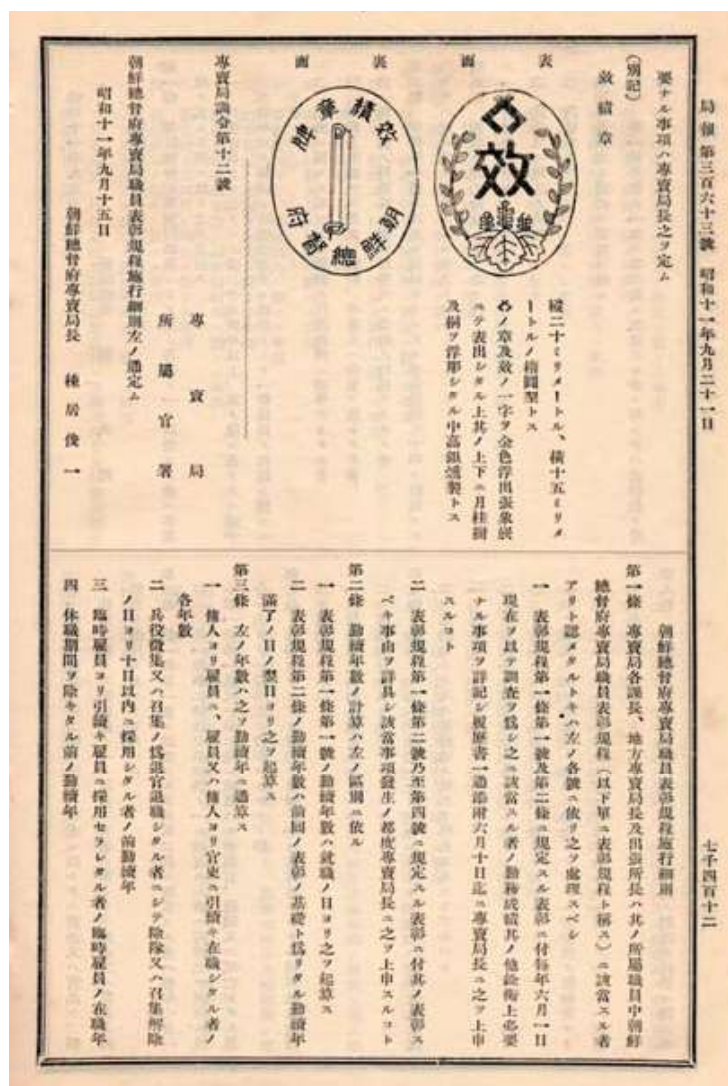 局報 第三百六十三號 昭和十一年九月二十一日
七千四百十二
要ナル事項ハ專賣局長之ヲ定ム
(別記)
效績章
表面
效
縱二十ミリメートル、橫十五ミリメ
ートルノ楕圓型トス
ノ章及效ノ一字ヲ金色浮出張象嵌
ニテ表出シタル上其ノ上下ニ月桂樹
及桐ヲ浮彫シタル中高銀燻製トス
裏面
效績章牌
朝鮮總督府
專賣局訓令第十二號
專賣局
所屬官署
朝鮮總督府專賣局職員表彰規程施行細則左ノ通定ム
昭和十一年九月十五日
朝鮮總督府專賣局長 棟居俊一
朝鮮總督府專賣局職員表彰規程施行細則
第一條 專賣局各課長、地方專賣局長及出張所長ハ其ノ所屬職員中朝鮮
總督府專賣局職員表彰規程(以下單ニ表彰規程ト稱ス)ニ該當スル者
アリト認メタルトキハ左ノ各號ニ依リ之ヲ處理スベシ
一 表彰規程第一條第一號及第二條ニ規定スル表彰ニ付每年六月一日
現在ヲ以テ調査ヲ爲シ之ニ該當スル者ノ勤務成績其ノ他銓衡上必要
ナル事項ヲ詳記シ履歷書一通添附六月十日迄ニ專賣局長ニ之ヲ上申
スルコト
二 表彰規程第一條第二號乃至第四號ニ規定スル表彰ニ付其ノ表彰ス
ベキ事由ヲ詳具シ該當事項發生ノ都度專賣局長ニ之ヲ上申スルコト
第二條 勤續年數ノ計算ハ左ノ區別ニ依ル
一 表彰規程第一條第一號ノ勤續年數ハ就職ノ日ヨリ之ヲ起算ス
二 表彰規程第二條ノ勤續年數ハ前回ノ表彰ノ基礎ト爲リタル勤續年
滿了ノ日ノ翌日ヨリ之ヲ起算ス
第三條 左ノ年數ハ之ヲ勤續年ニ通算ス
一 傭人ヨリ雇員ニ、雇員又ハ傭人ヨリ官吏ニ引續キ在職シタル者ノ
各年數
二 兵役徵集又ハ召集ノ爲退官退職シタル者ニシテ除隊又ハ召集解除
ノ日ヨリ十日以內ニ採用シタル者ノ前勤續年
三 臨時雇員ヨリ引續キ雇員ニ採用セラレタル者ノ臨時雇員ノ在職年
四 休職期間ヲ除キタル前ノ勤續年